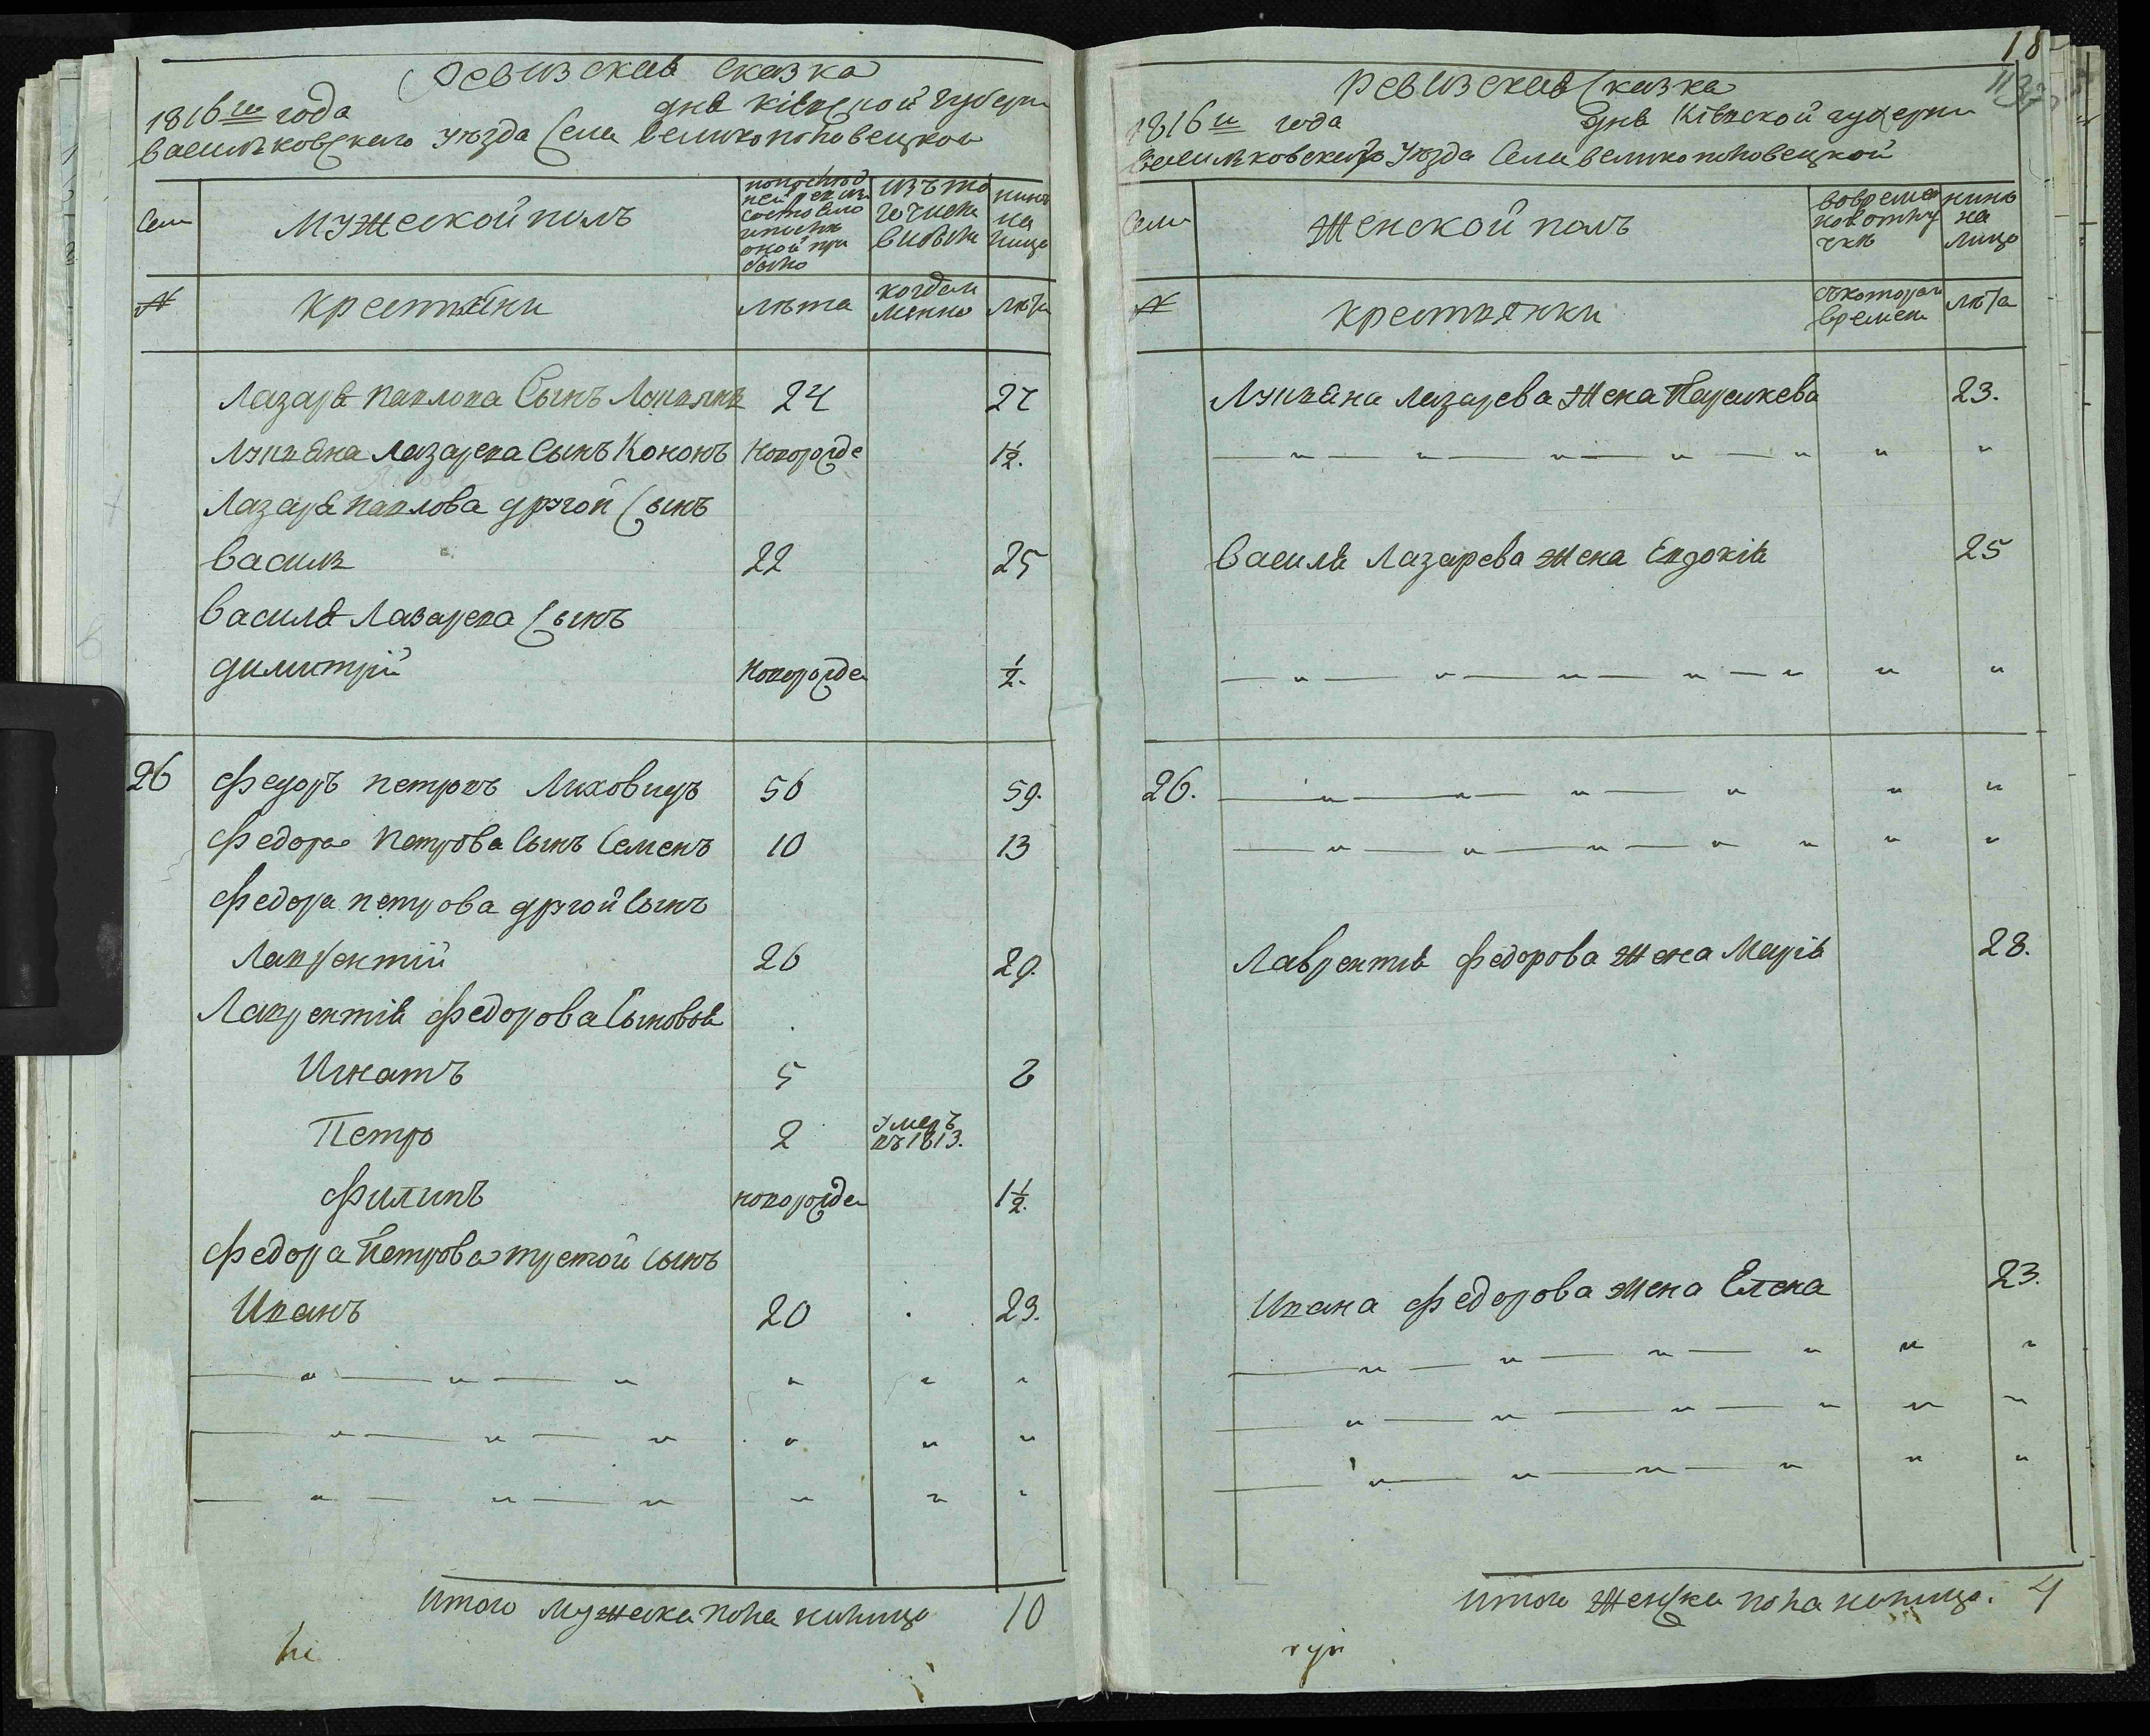 Ревизская сказка
1816го года дня Кіевской губерн
васильковскаго уѣзда Села великополовецкой
Семи
мужеской полъ
по послѣд
ней ревизи
состояло
и послѣ
оной при
было
изъ то
го числа
выбыло
нынѣ
на
лицо
№
крестьяни
лѣта
когда и
мянно
лѣта
Лазаря павлова Сынъ Лукьянъ 24 27
Лукьяна лазарева Сынъ Кононъ новорожде 1½.
Лазаря павлова другой Сынъ
василь 22 25
василя Лазарева Сынъ
димитрій новорожде ½.
26 федоръ петровъ Лиховидъ 56 59.
федора петрова Сынъ Семенъ 10 13
федора петрова другой Сынъ
Лаврентій 26 29.
Лаврентія федорова Сыновья
Игнатъ 5 8
Петро 2 умеръ
въ 1813.
филипъ новорожде 1½.
федора Петрова третой Сынъ
Иванъ 20 23.
Итого мужеска пола налицо 10
18
Ревизская Сказка
1816го года дня Кіевской губерни
васильковскаго уѣзда Села великополовецкой
Семи
Женской полъ
во времен
ной отлу
чкѣ
нынѣ
на
лицо
№
крестьянки
съ котораг
времени
лѣта
Лукьяна лазарева жена Параскева 23.
василя Лазарева жена Евдокія 25
26.
Лаврентія федорова жена Марія 28.
Ивана федорова жена Елена 23.
Итого Женска пола налицо. 4